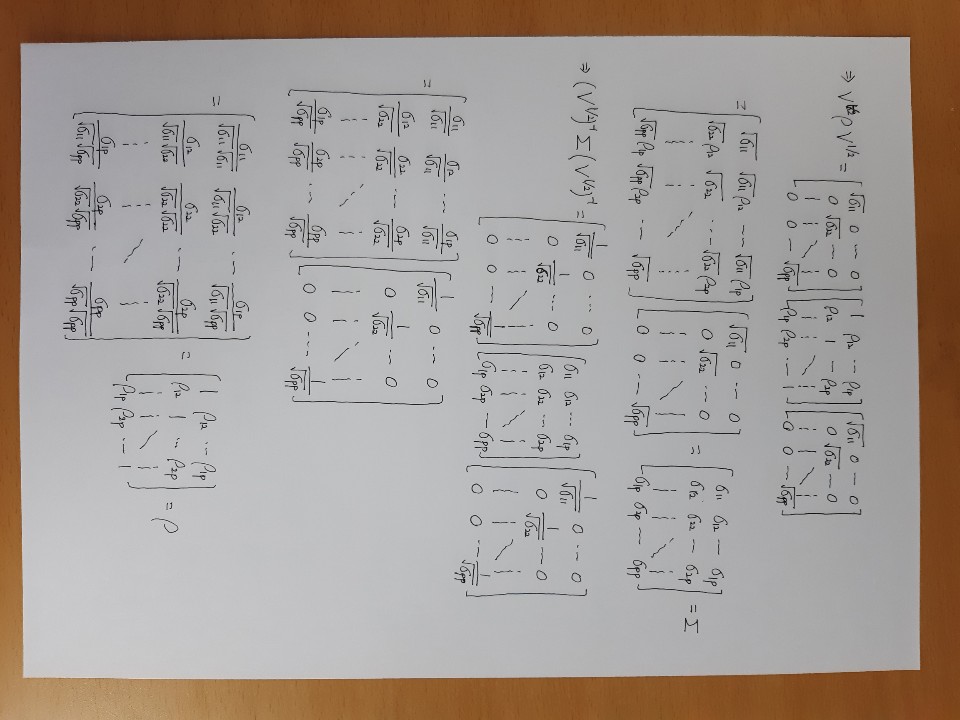 ⇒ V^{1/2} ρ V^{1/2} = [√σ11 0 --- 0; 0 √σ22 --- 0; ¦ ¦ \ ¦; 0 0 --- √σpp] [1 ρ12 --- ρ1p; ρ12 1 --- ρ2p; ¦ ¦ \ ¦; ρ1p ρ2p --- 1] [√σ11 0 --- 0; 0 √σ22 --- 0; ¦ ¦ \ ¦; 0 0 --- √σpp]
= [√σ11 √σ11ρ12 --- √σ11ρ1p; √σ22ρ12 √σ22 --- √σ22ρ2p; ¦ ¦ \ ¦; √σppρ1p √σppρ2p --- √σpp] [√σ11 0 --- 0; 0 √σ22 --- 0; ¦ ¦ \ ¦; 0 0 --- √σpp] = [σ11 σ12 --- σ1p; σ12 σ22 --- σ2p; ¦ ¦ \ ¦; σ1p σ2p --- σpp] = Σ
⇒ (V^{1/2})^{-1} Σ (V^{1/2})^{-1} = [1/√σ11 0 --- 0; 0 1/√σ22 --- 0; ¦ ¦ \ ¦; 0 0 --- 1/√σpp] [σ11 σ12 --- σ1p; σ12 σ22 --- σ2p; ¦ ¦ \ ¦; σ1p σ2p --- σpp] [1/√σ11 0 --- 0; 0 1/√σ22 --- 0; ¦ ¦ \ ¦; 0 0 --- 1/√σpp]
= [σ11/√σ11 σ12/√σ11 --- σ1p/√σ11; σ12/√σ22 σ22/√σ22 --- σ2p/√σ22; ¦ ¦ \ ¦; σ1p/√σpp σ2p/√σpp --- σpp/√σpp] [1/√σ11 0 --- 0; 0 1/√σ22 --- 0; ¦ ¦ \ ¦; 0 0 --- 1/√σpp]
= [σ11/√σ11√σ11 σ12/√σ11√σ22 --- σ1p/√σ11√σpp; σ12/√σ11√σ22 σ22/√σ22√σ22 --- σ2p/√σ22√σpp; ¦ ¦ \ ¦; σ1p/√σ11√σpp σ2p/√σ22√σpp --- σpp/√σpp√σpp] = [1 ρ12 --- ρ1p; ρ12 1 --- ρ2p; ¦ ¦ \ ¦; ρ1p ρ2p --- 1] = ρ